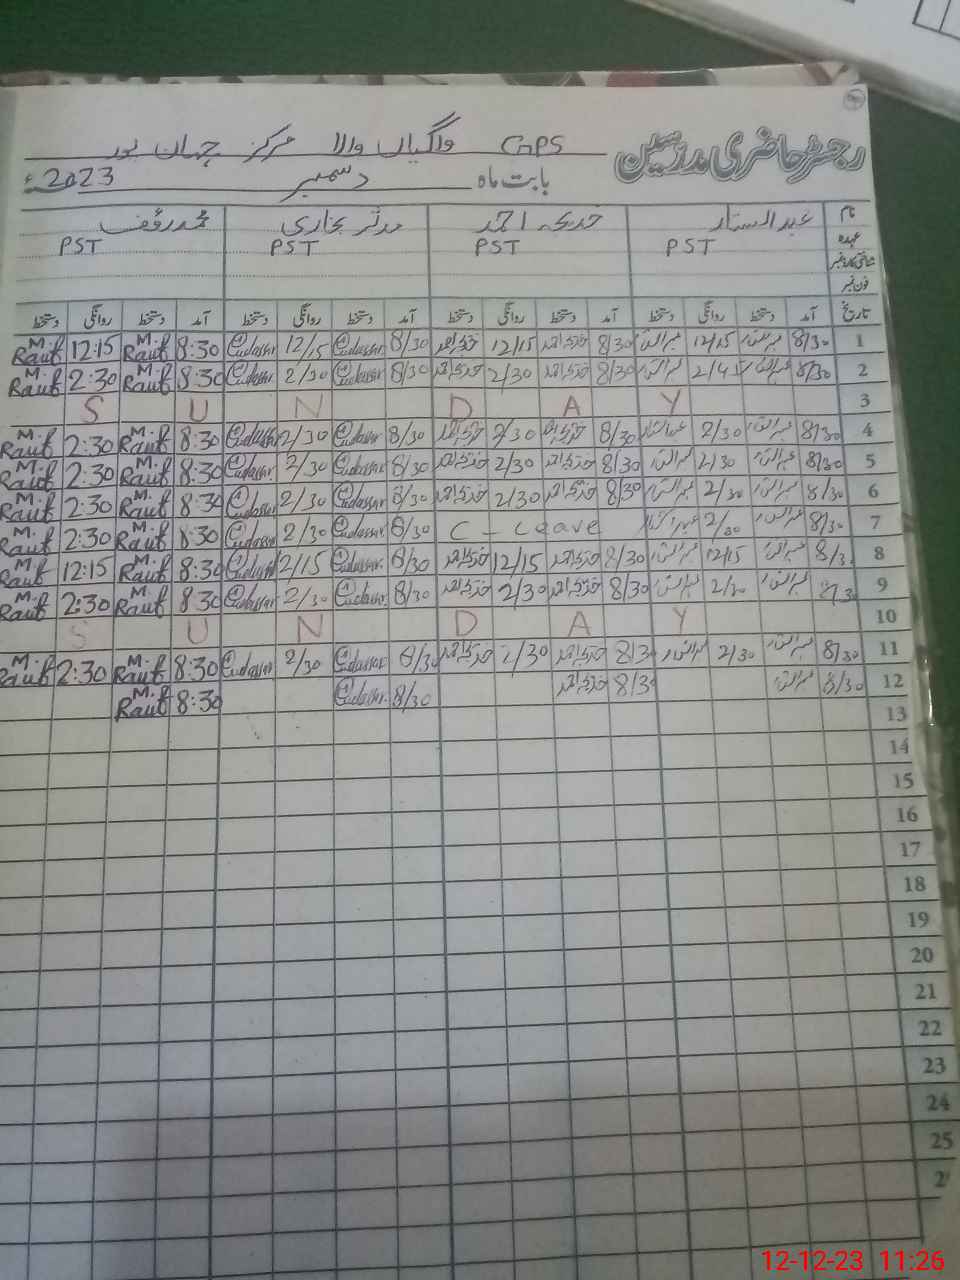 رجسٹر حاضری مدرسین GPS واگیاں والا مرکز جہان پور
بابت ماہ دسمبر 2023ء
نام عبد الستار خدیجہ احمد مدثر بخاری محمد رؤف
عہدہ PST PST PST PST
شناختی کارڈ نمبر
فون نمبر
تاریخ آمد دستخط روانگی دستخط آمد دستخط روانگی دستخط آمد دستخط روانگی دستخط آمد دستخط روانگی دستخط
1 8/30 عبدالستار 12/15 عبدالستار 8/30 خدیجہ احمد 12/15 خدیجہ احمد 8/30 12/15 8:30 M. Rauf 12:15 M. Rauf
2 8/30 عبدالستار 2/45 عبدالستار 8/30 خدیجہ احمد 2/30 خدیجہ احمد 8/30 2/30 8:30 M. Rauf 2:30 M. Rauf
3 S U N D A Y
4 8/30 عبدالستار 2/30 عبدالستار 8/30 خدیجہ احمد 2/30 خدیجہ احمد 8/30 2/30 8:30 M. Rauf 2:30 M. Rauf
5 8/30 عبدالستار 2/30 عبدالستار 8/30 خدیجہ احمد 2/30 خدیجہ احمد 8/30 2/30 8:30 M. Rauf 2:30 M. Rauf
6 8/30 عبدالستار 2/30 عبدالستار 8/30 خدیجہ احمد 2/30 خدیجہ احمد 8/30 2/30 8:30 M. Rauf 2:30 M. Rauf
7 8/30 عبدالستار 2/30 عبدالستار C - Leave 8/30 2/30 8:30 M. Rauf 2:30 M. Rauf
8 8/3 عبدالستار 12/15 عبدالستار 8/30 خدیجہ احمد 12/15 خدیجہ احمد 8/30 2/15 8:30 M. Rauf 12:15 M. Rauf
9 8/30 عبدالستار 2/30 عبدالستار 8/30 خدیجہ احمد 2/30 خدیجہ احمد 8/30 2/30 8:30 M. Rauf 2:30 M. Rauf
10 S U N D A Y
11 8/30 عبدالستار 2/30 عبدالستار 8/3 خدیجہ احمد 2/30 خدیجہ احمد 8/30 2/30 8:30 M. Rauf 2:30 M. Rauf
12 8/30 عبدالستار 8/3 خدیجہ احمد 8/30 8:30 M. Rauf
13
14
15
16
17
18
19
20
21
22
23
24
25
12-12-23 11:26